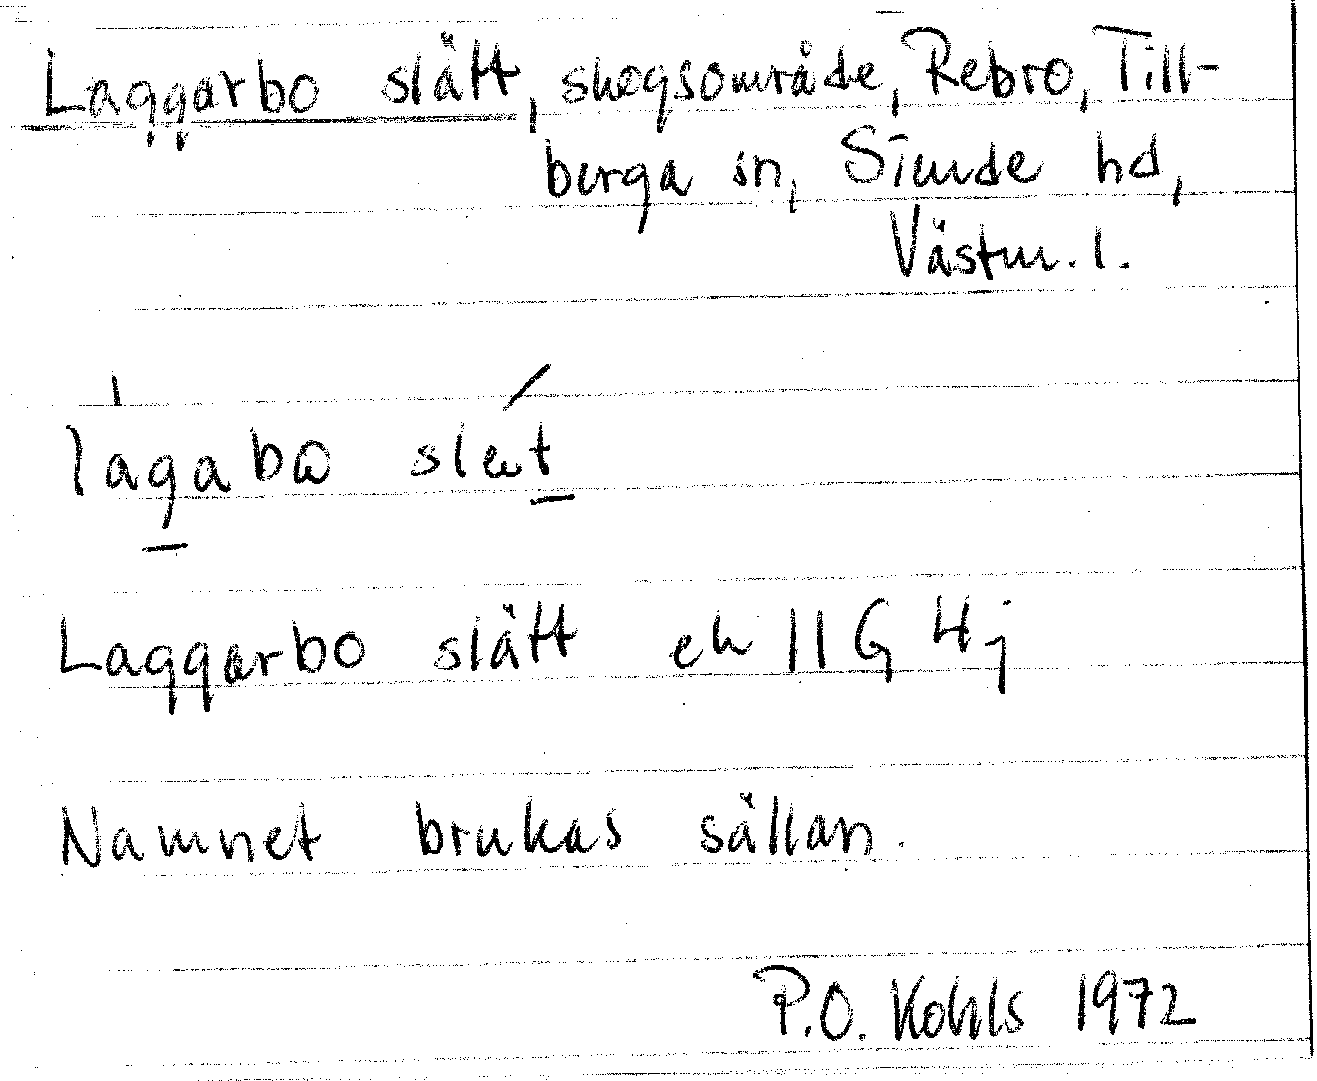 Laggarbo slätt, skogsområde, Rebro, Till-
berga sn, Siende hd,
Västm. l.
lagabω slæt
Laggarbo slätt ek 11 G 4j
Namnet brukas sällan.
P.O. Kohls 1972